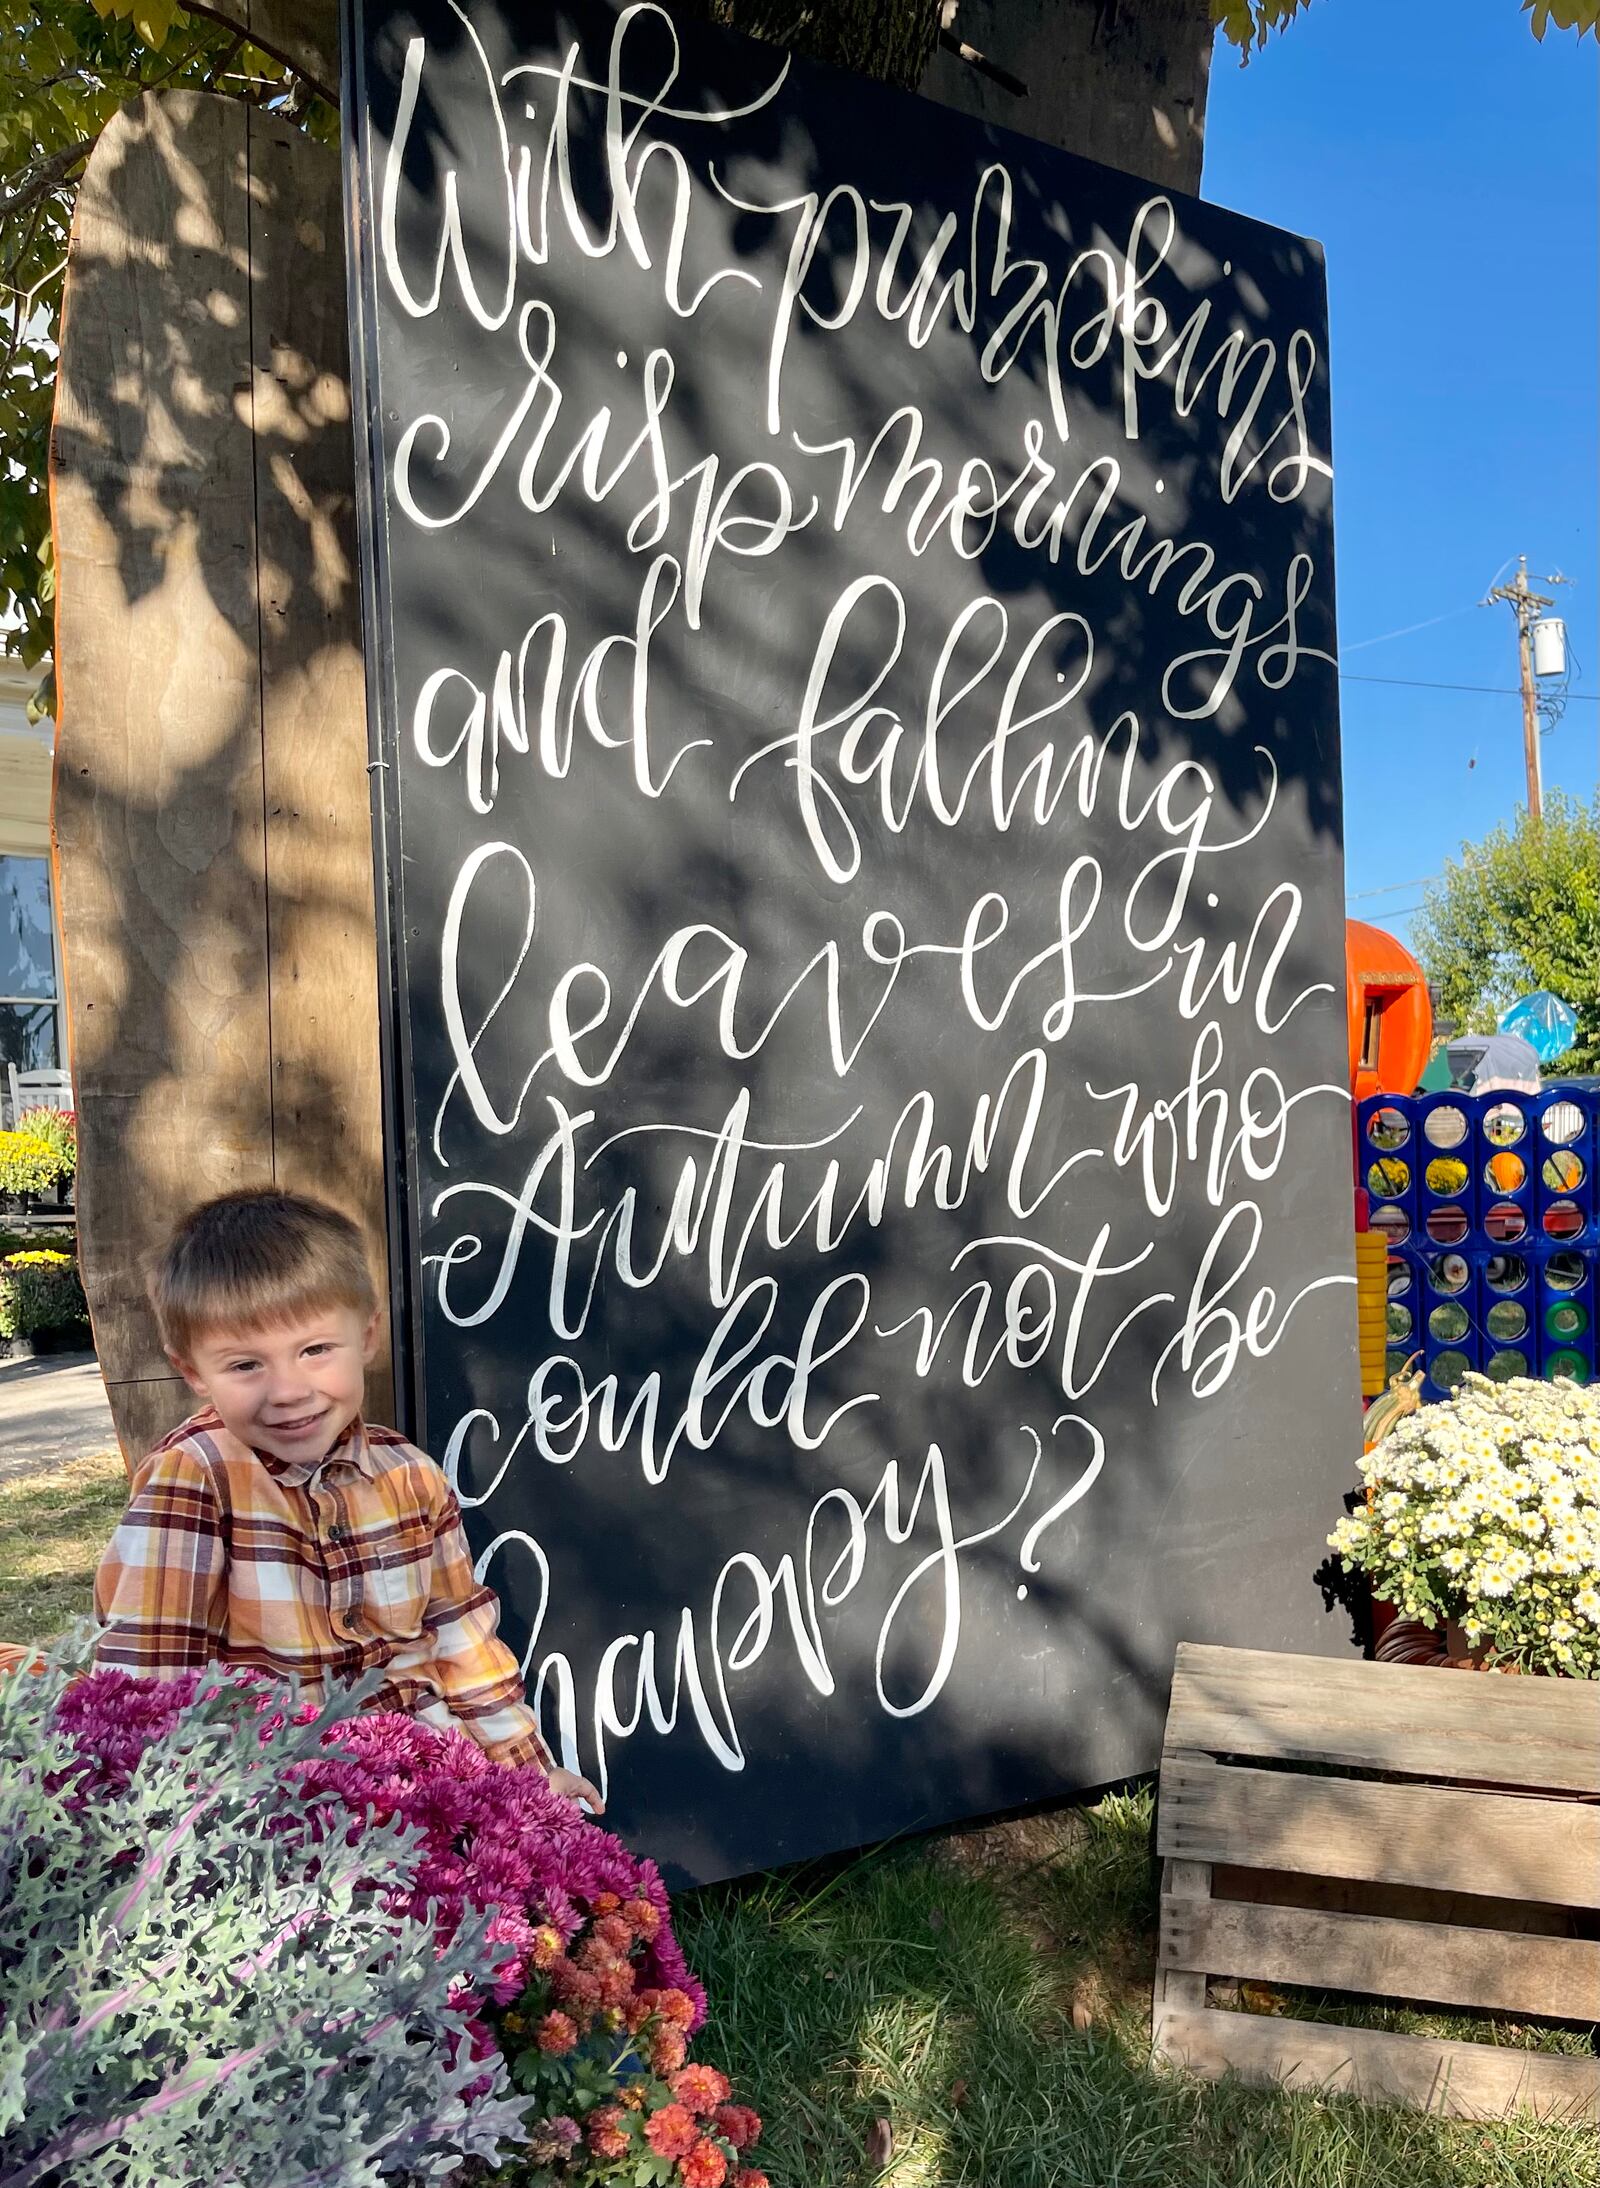 With pumpkins
crisp mornings
and falling
leaves in
Autumn who
could not be
happy?